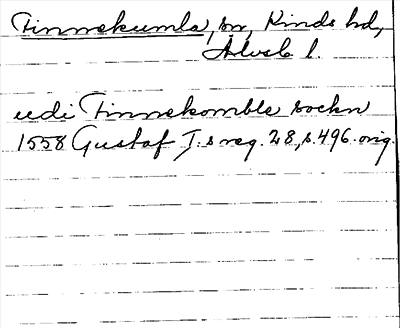 Finnekumla, sn, Kinds hd,
Älvsb. l.
udi Finnekombla sockn
1558 Gustaf I:s reg. 28, s. 496. orig.